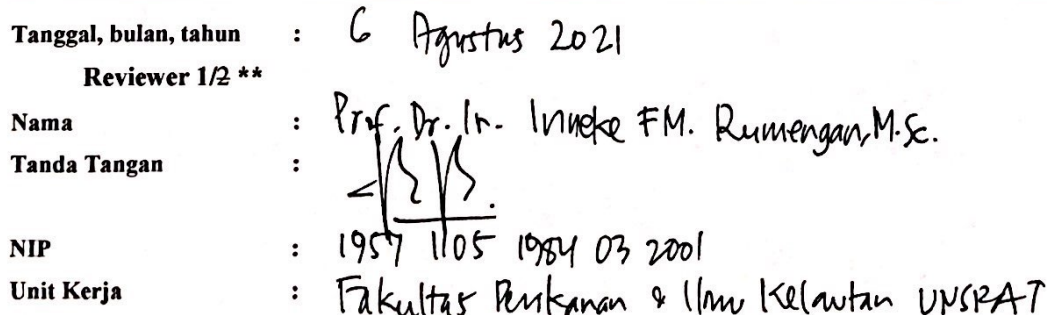 Tanggal, bulan, tahun : 6 Agustus 2021
Reviewer 1/2 **
Nama : Prof. Dr. Ir. Inneke FM. Rumengan, M.Sc.
Tanda Tangan :
NIP : 1957 1105 1984 03 2001
Unit Kerja : Fakultas Perikanan & Ilmu Kelautan UNSRAT